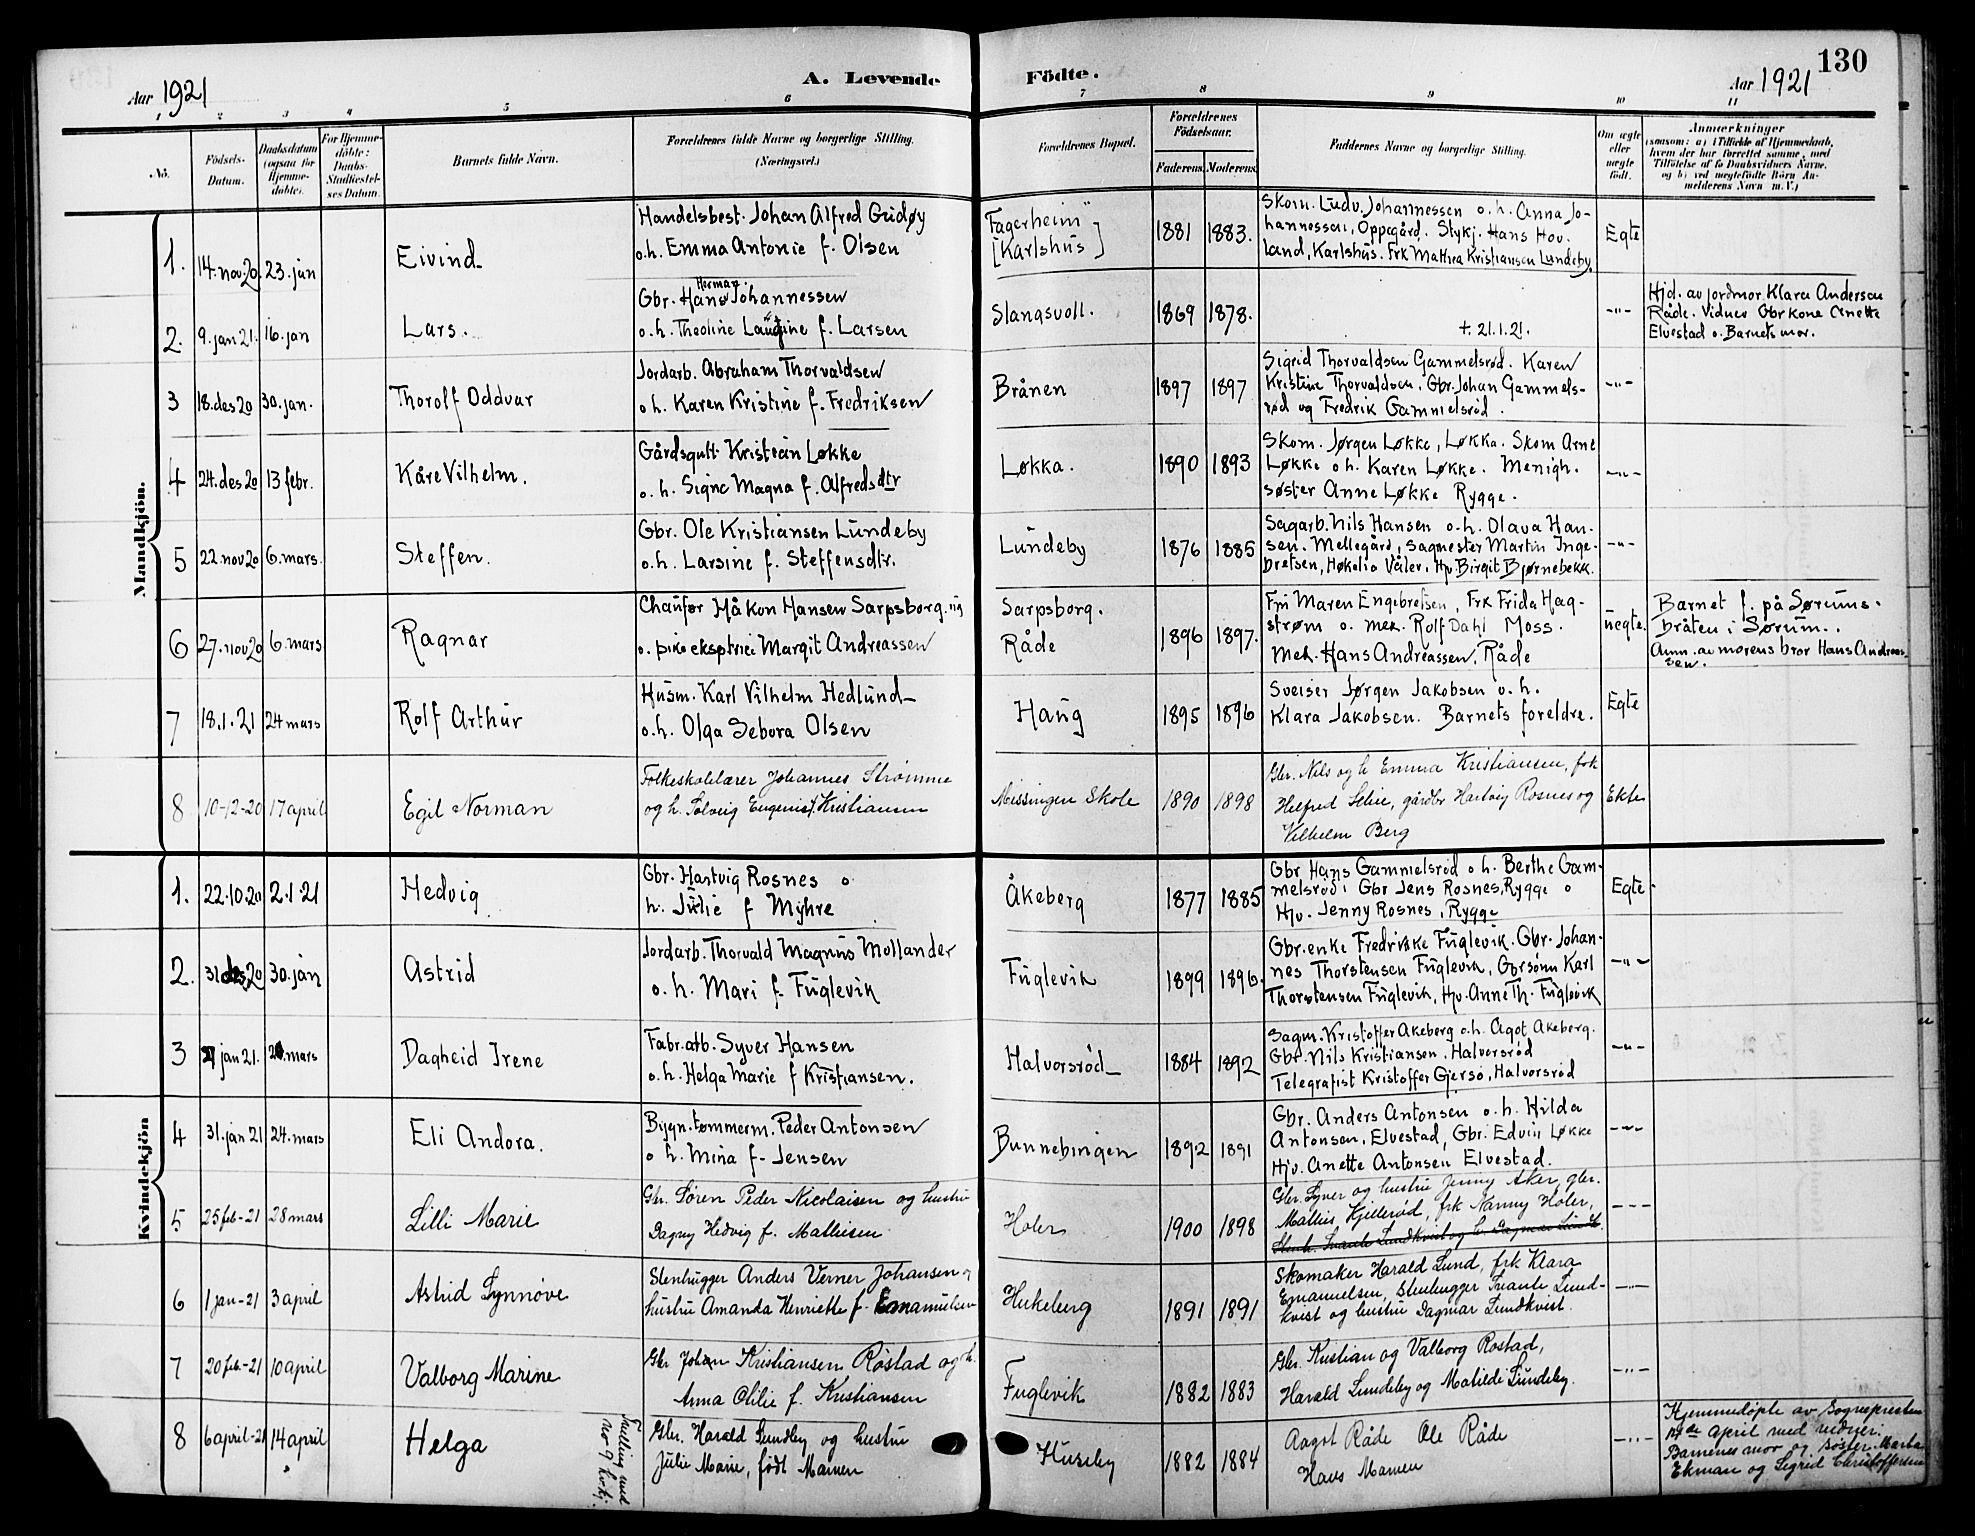 130
A. Levende Födte.
Aar 1921
Aar 1921
1 2 3 4 5 6 7 8 9 10 11
No.
Födsels-Datum.
Daabsdatum (ogsaa for Hjemme-döbte).
For Hjemme-döbte: Daabs-Stadfæstel-ses Datum.
Barnets fulde Navn.
Forældrenes fulde Navne og borgerlige Stilling. (Næringsvei.)
Forældrenes Bopæl.
Forældrenes Födselsaar.
Faderens. Moderens.
Faddernes Navne og borgerlige Stilling.
Om ægte eller uægte födt.
Anmærkninger
(saasom: a) i Tilfælde af Hjemmedaab,
hvem der har forrettet samme, med
Tilföielse af to Daabsvidners Navne,
og b) ved uægtefödte Börn An-
melderens Navn m. V.)
Mandkjön.
1. 14. nov. 20. 23. jan Eivind
Handelsbest. Johan Alfred Gridøy
o.h. Emma Antonie f. Olsen
"Fagerheim"
[Karlshus]
1881 1883.
Skom. Ludv. Johannessen o.h. Anna Jo-
hannessen, Oppegård. Stykj. Hans Hov-
land, Karlshus. Frk Mathea Kristiansen Lundeby.
Egte
2. 9. jan 21. 16. jan Lars.
Gbr. Hans Herman Johannessen
o.h. Theoline f. Larsen
Slangsvoll. 1869 1878.
+ 21.1.21.
-"-
Hjd. av jordmor Klara Andersen
Råde. Vidner Gbrkone Anette
Elvestad o. Barnets mor.
3 18. des 20 30. jan. Thorolf Oddvar
Jordarb. Abraham Thorvaldsen
o h. Karen Kristine f. Fredriksen
Brånen 1897 1897
Sigrid Thorvaldsen Gammelsrød. Karen
Kristine Thorvaldsen. Gbr. Johan Gammels-
rød og Fredrik Gammelsrød.
-"-
4 24. des 20 13 febr. Kåre Vilhelm.
Gårdsgutt Kristian Løkke
o. h. Signe Magna f. Alfredsdtr
Løkka. 1890 1893
Skom. Jørgen Løkke, Løkka. Skom Arne
Løkke o h. Karen Løkke. Menigh.
søster Anne Løkke Rygge.
-"-
5 22. nov 20 6. mars. Steffen.
Gbr. Ole Kristiansen Lundeby
o.h. Larsine f. Steffensdtr.
Lundeby 1876 1885
Sagarb. Nils Hansen o.h. Olava Han-
sen. Mellegård, Sagmester Martin Inge-
bretsen, Høkelia Våler. Hjv. Birgit Bjørnebekk.
-"-
6 27. nov 20 6. mars Ragnar
Chaufør Håkon Hansen Sarpsborg. ug
o. pike eksptrice Margit Andreassen
Sarpsborg.
Råde
1896 1897.
Fru Maren Engebretsen, Frk Frida Hag-
strøm o. mek. Rolf Dahl Moss.
Mek. Hans Andreassen. Råde
uegte.
Barnet f. på Sørums-
bråten i Sørum.
Anm. av morens bror Hans Andreas-
sen.
7 18.1.21 24 mars Rolf Arthur
Husm. Karl Vilhelm Hedlund
o.h. Olga Sebora Olsen
Haug 1895 1896
Sveiser Jørgen Jakobsen o.h.
Klara Jakobsen. Barnets foreldre.
Egte
8 10-12-20 17 april Egil Norman
Folkeskolelærer Johannes Strømme
og h. Solveig Eugenie f. Kristiansen
Missingen Skole 1890 1898
Gbr. Nils og h Emma Kristiansen, frk
Helfred , gårdbr Hartvig Rosnes og
Vilhelm Berg
Ekte
Kvindekjön
1. 22.10.20 2.1.21 Hedvig
Gbr. Hartvig Rosnes o
h. Julie f Myhre
Åkeberg 1877 1885
Gbr Hans Gammelsrød o h. Berthe Gam-
melsrød. Gbr Jens Rosnes, Rygge o
Hjv. Jenny Rosnes, Rygge
Egte.
2. 31 des 20 30. jan Astrid
Jordarb. Thorvald Magnus Mollander
o. h. Mari f. Fuglevik
Fuglevik 1899 1896.
Gbr. enke Fredrikke Fuglevik. Gbr. Johan-
nes Thorstensen Fuglevik, Gbrsønn Karl
Thorstensen Fuglevik, Hjv. Anne Th. Fuglevik
-"-
3 jan 21. mars Dagheid Irene
Fabr. arb. Syver Hansen
o.h. Helga Marie f Kristiansen.
Halvorsrød 1884 1892
Sagm. Kristoffer Akeberg o.h. Agot Akeberg.
Gbr. Nils Kristiansen. Halvorsrød
Telegrafist Kristoffer Gjersø, Halvorsrød
-"-
4 31. jan 21 24. mars Eli Andora.
Bygn. tømmerm. Peder Antonsen
o h. Mina f. Jensen
Bunnebingen 1892 1891
Gbr. Anders Antonsen o.h. Hilda
Antonsen, Elvestad, Gbr. Edvin Løkke
Hjv. Anette Antonsen Elvestad.
-"-
5 25 feb-21 28 mars Lilli Marie
Gbr. Søren Peder Nicolaisen og hustru
Dagny Hedvig f. Mathisen
Holer 1900 1898
Gbr. Syver og hustru Jenny Aker, gbr.
Mathis Kjellerød, frk Nanny Holer,
Stenh. Svante Lundkvist og h. Dagmar
- - -
6 1 jan-21 3 april Astrid Synnøve
Stenhugger Anders Verner Johansen og
hustru Amanda Henriette f. Emanuelsen
Hukeberg 1891 1891
Skomaker Harald Lund, frk Klara
Emanuelsen, Stenhugger Svante Lund-
kvist og hustru Dagmar Lundkvist.
-"-
7 20 feb.-21 10 april Valborg Marine
Gbr Johan Kristiansen Røstad og h.
Anna Otilie f. Kristiansen
Fuglevik 1882 1883
Gbr. Kristian og Valborg Rostad,
Harald Lundeby og Matilde Lundeby.
-"-
8 6 april-21 14 april Helga
Tvilling med
no 9
Gbr. Harald Lundby og hustru
Julie Marie, født Mamen
Huseby 1882 1884
Aagot Råde Ole Råde
Hans Mamen
-"-
Hjemmedøpte av Sognepresten
april med vidner:
Barnenes mor og søster Marta
Ekman og Sigrid Christoffersen